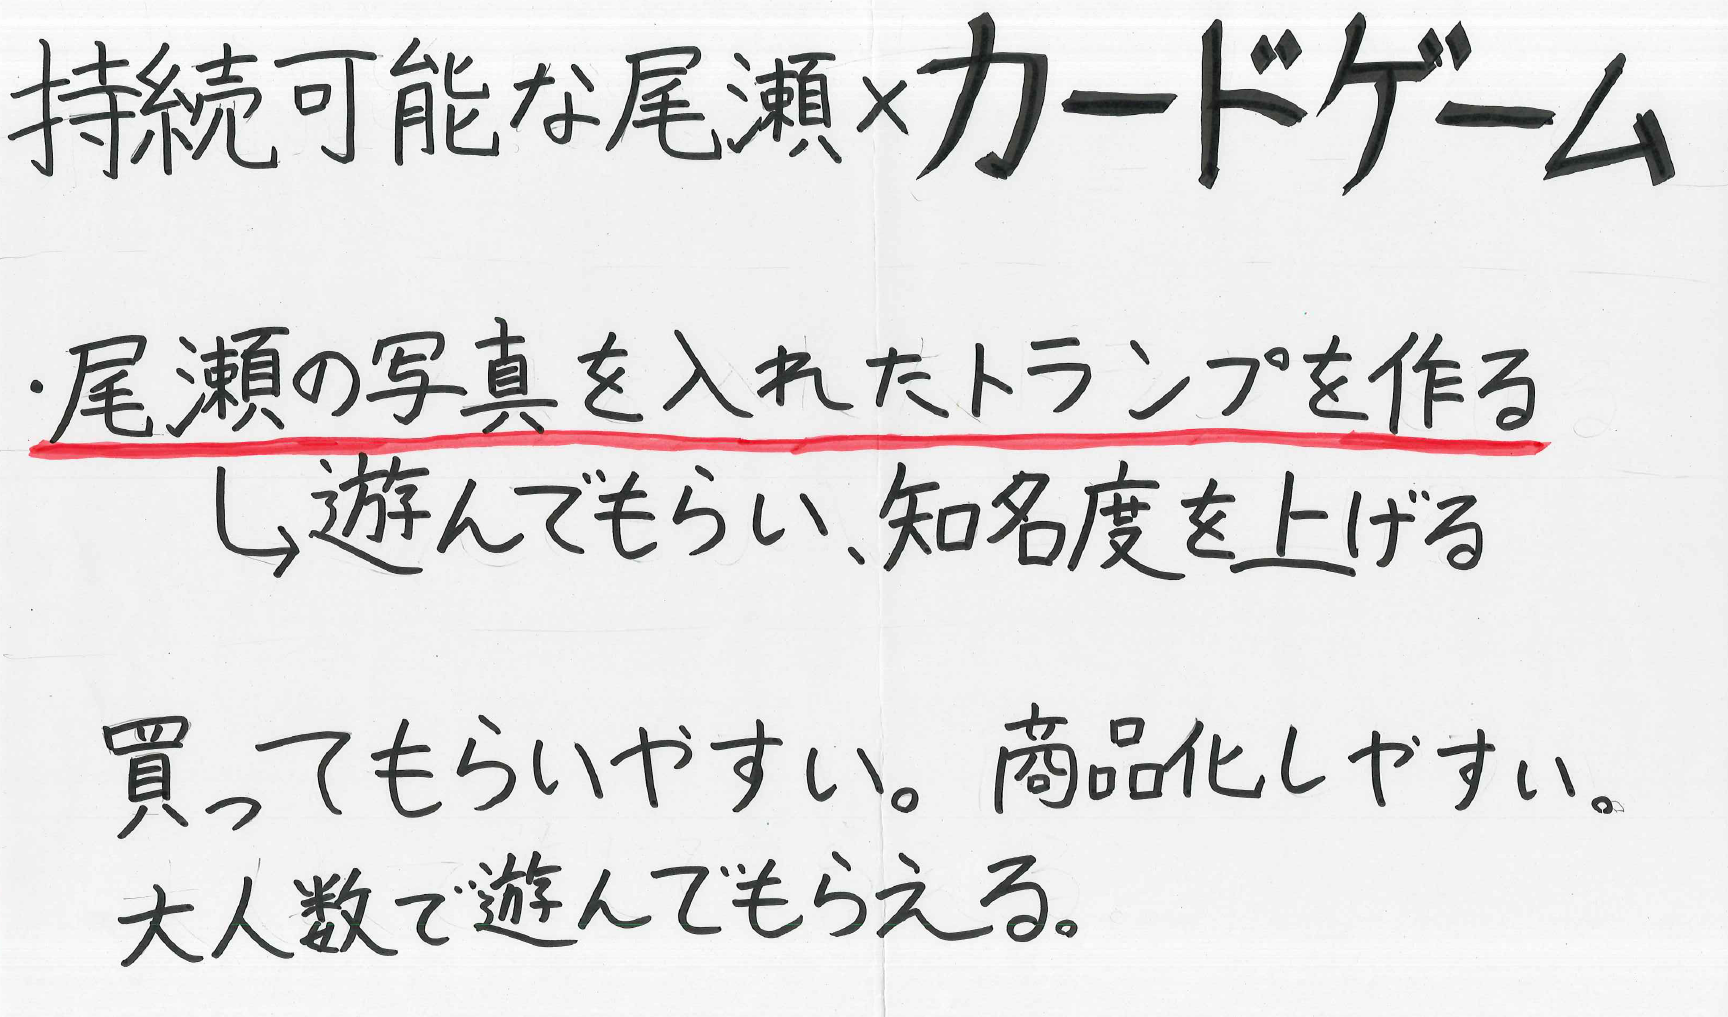 持続可能な尾瀬×カードゲーム
・尾瀬の写真を入れたトランプを作る
↳遊んでもらい、知名度を上げる
買ってもらいやすい。商品化しやすい。
大人数で遊んでもらえる。